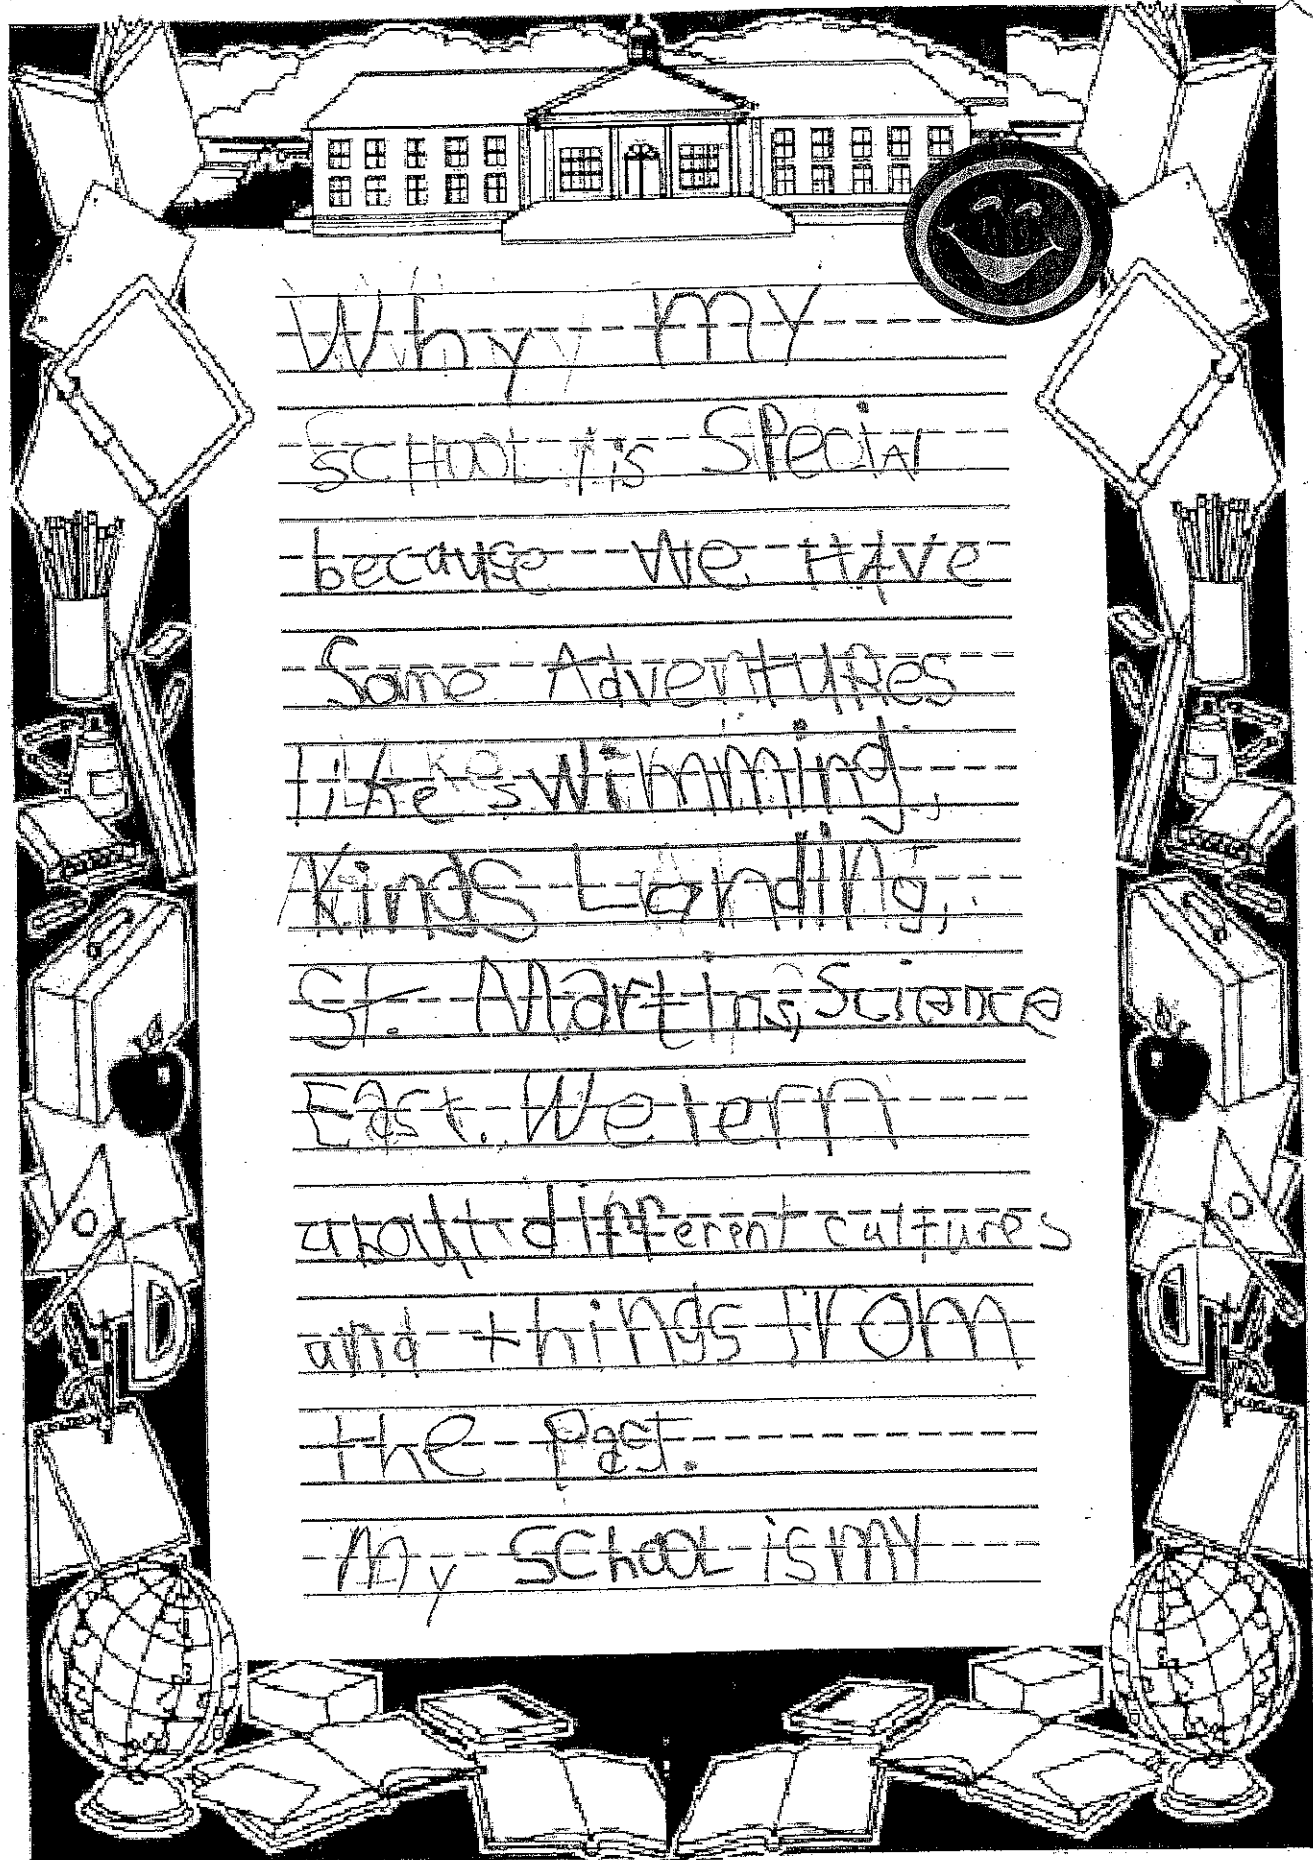 Why my
SCHOOL is SPeciAl
because We HAve
Some AdventuRes
like swimming,
Kinds Landing,
St. Martins, Science
East. Welern
about different cultures
and things from
the past.
My SChooL is my